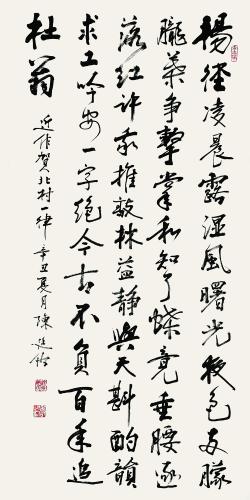 楊徑凌晨露湿風曙光夜色交朦
朧葉争擊掌和知了蝶竟垂腰逐
落红许我推敲林益静與天斟酌韻
求工吟安一字絕今古不負百年追
杜翁
近作賀北村一律辛丑夏月陳廷佑